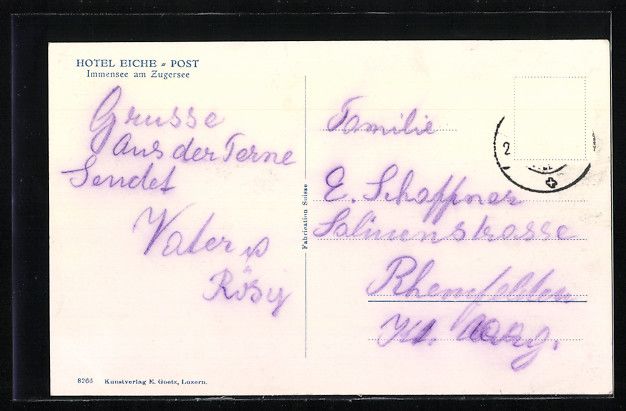 HOTEL EICHE - POST
Immensee am Zugersee
Grusse
Aus der Ferne
Sendet
Vater u
Rösy
Fabrication Suisse
Familie
E. Schaffner
Salinenstrasse
Rheinfelden
Kt. Aarg.
2
8266 Kunstverlag E. Goetz, Luzern.